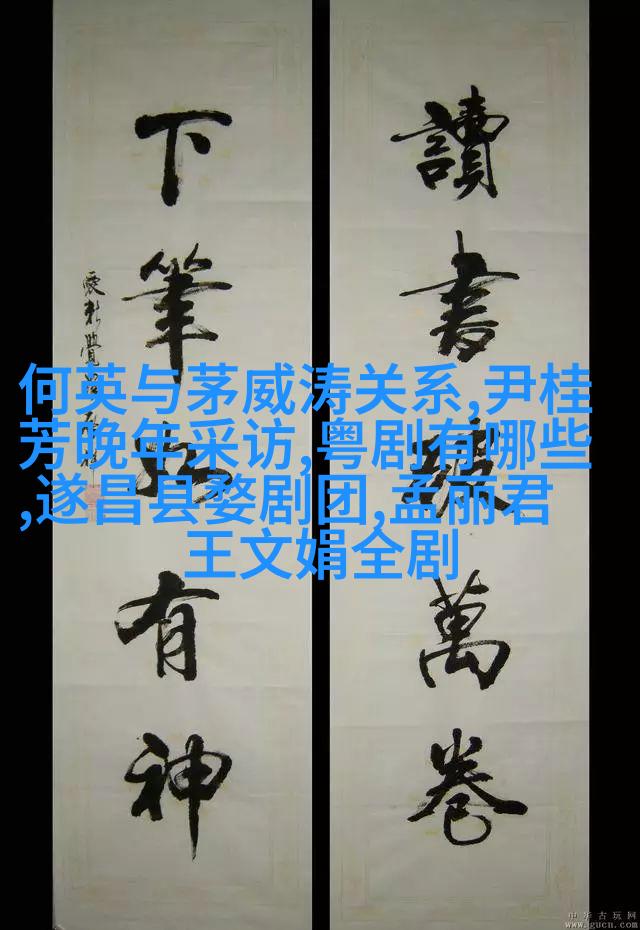 讀書破萬卷
下筆如有神
何英与茅威涛关系,尹桂
芳晚年采访,粤剧有哪些
,遂昌县婺剧团,孟丽君
王文娟全剧
中华古玩网
www.gucn.com